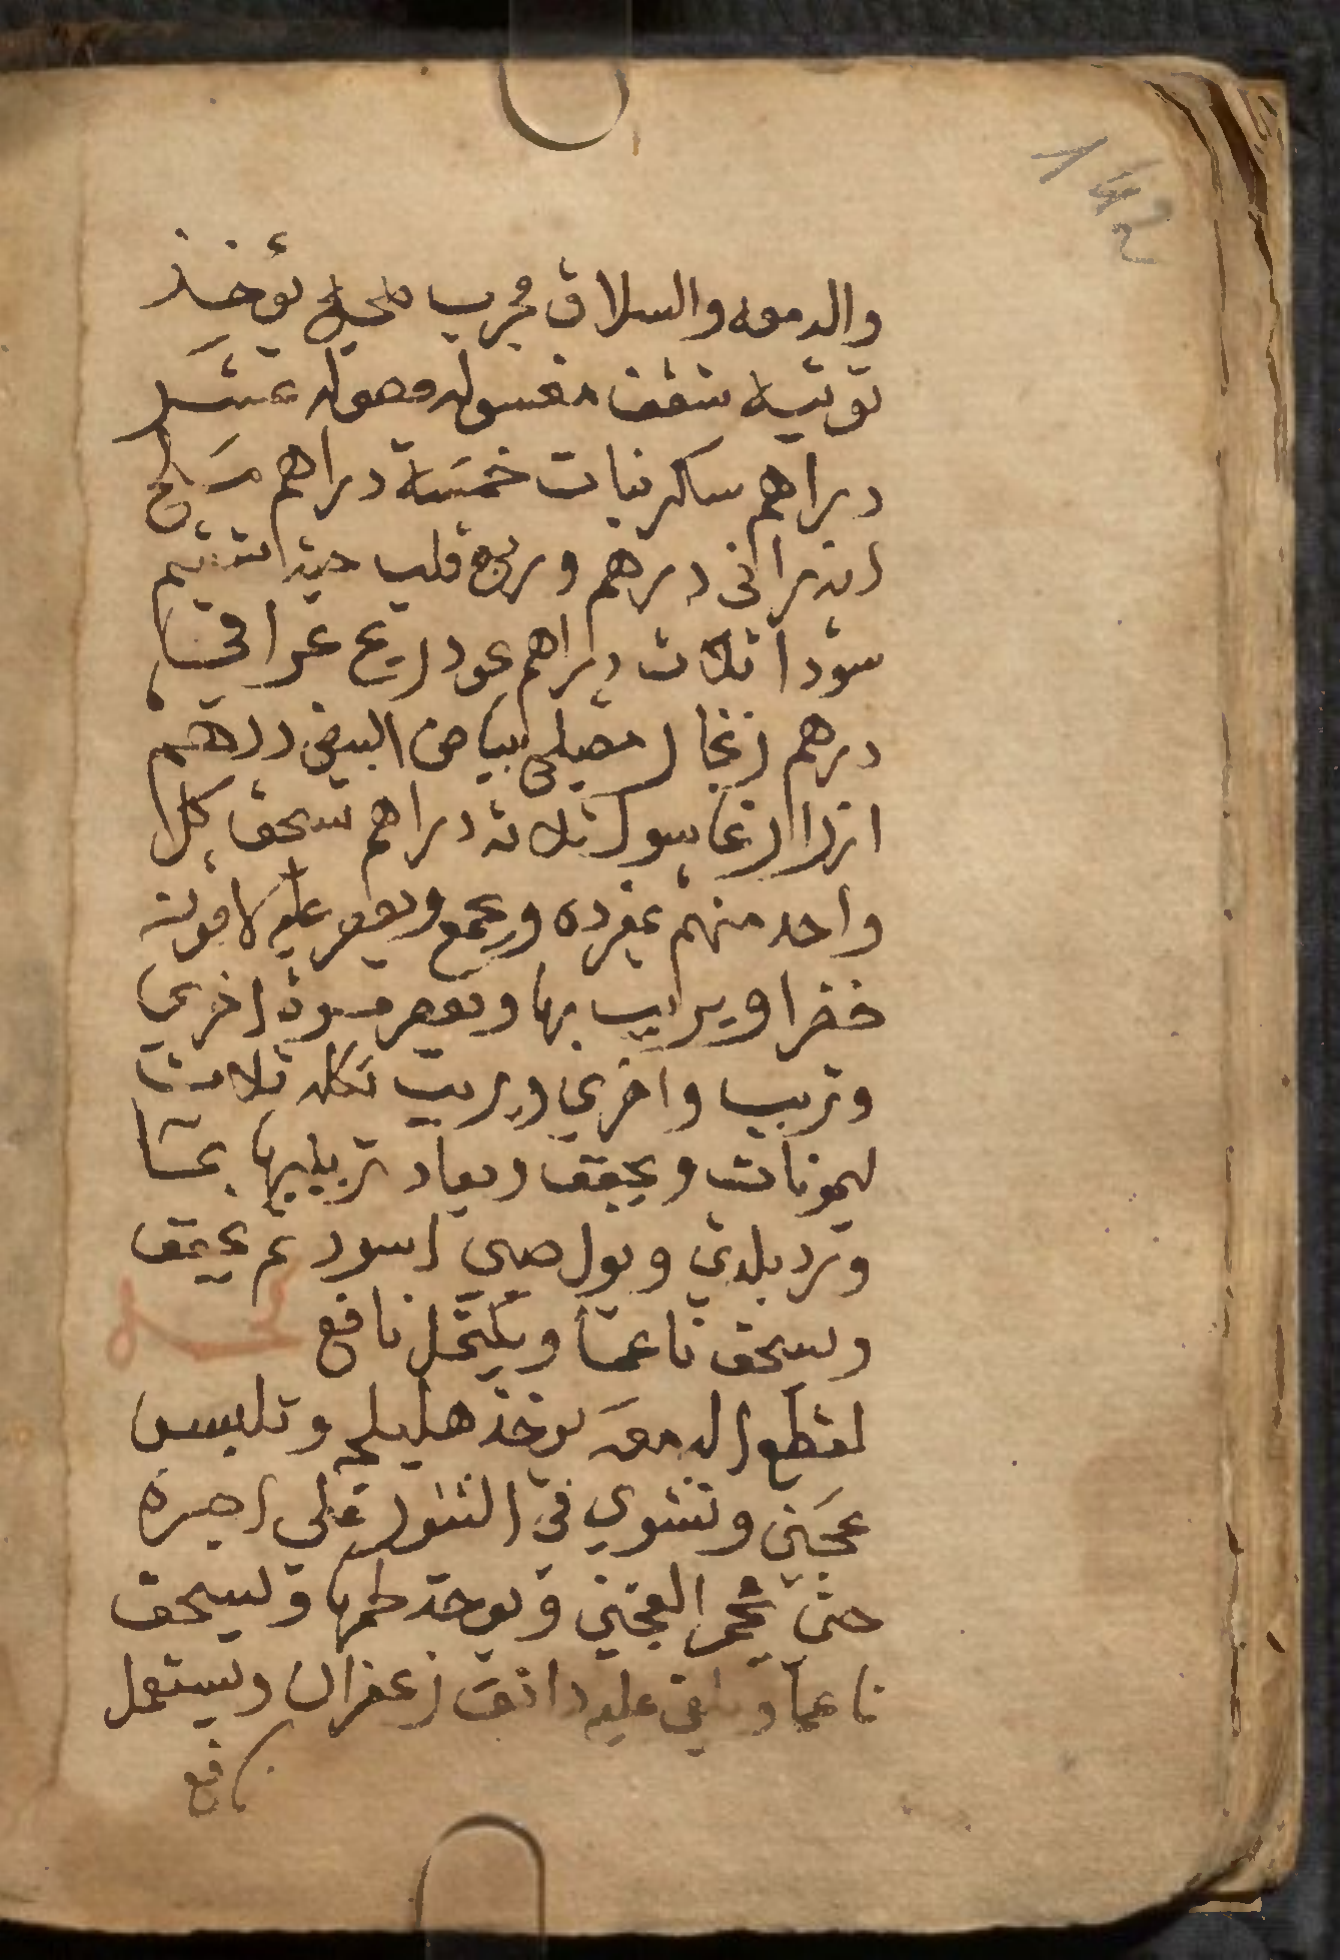 142
والدمعه والسلاق مجرب صحيح يؤخذ
توتيه شقف مغسوله مصوله عشر
دراهم سكر نبات خمسة دراهم ملح
اندراني درهم وربع قلب حبة التشيم
سودا ثلاث دراهم عود ريح عراقي
درهم زنجار مصلى ببياض البيض درهم
انزاروت ثلاثه دراهم تسحق كل
واحد منهم بمفرده ويجمع ويعصر عليه لامونه
خضرا ويربب بها ويعصر مرة اخري
وتربب واخري ويربب تكله ثلاث
ليمونات ويجفف ويعاد تربيبها بمشا
ورد بلدي وبول صبي اسود ثم يجفف
ويسحق ناعما ويكتحل نافع كحل
لقطع الدمعه يوخذ هليلج وتلبس
عجين وتشوي في التنور علي اجرة
حتى يحمر العجين ويوخذ لحمها ويسحق
ناعما ويلقى عليه دانق زعفران ويستعمل
نافع